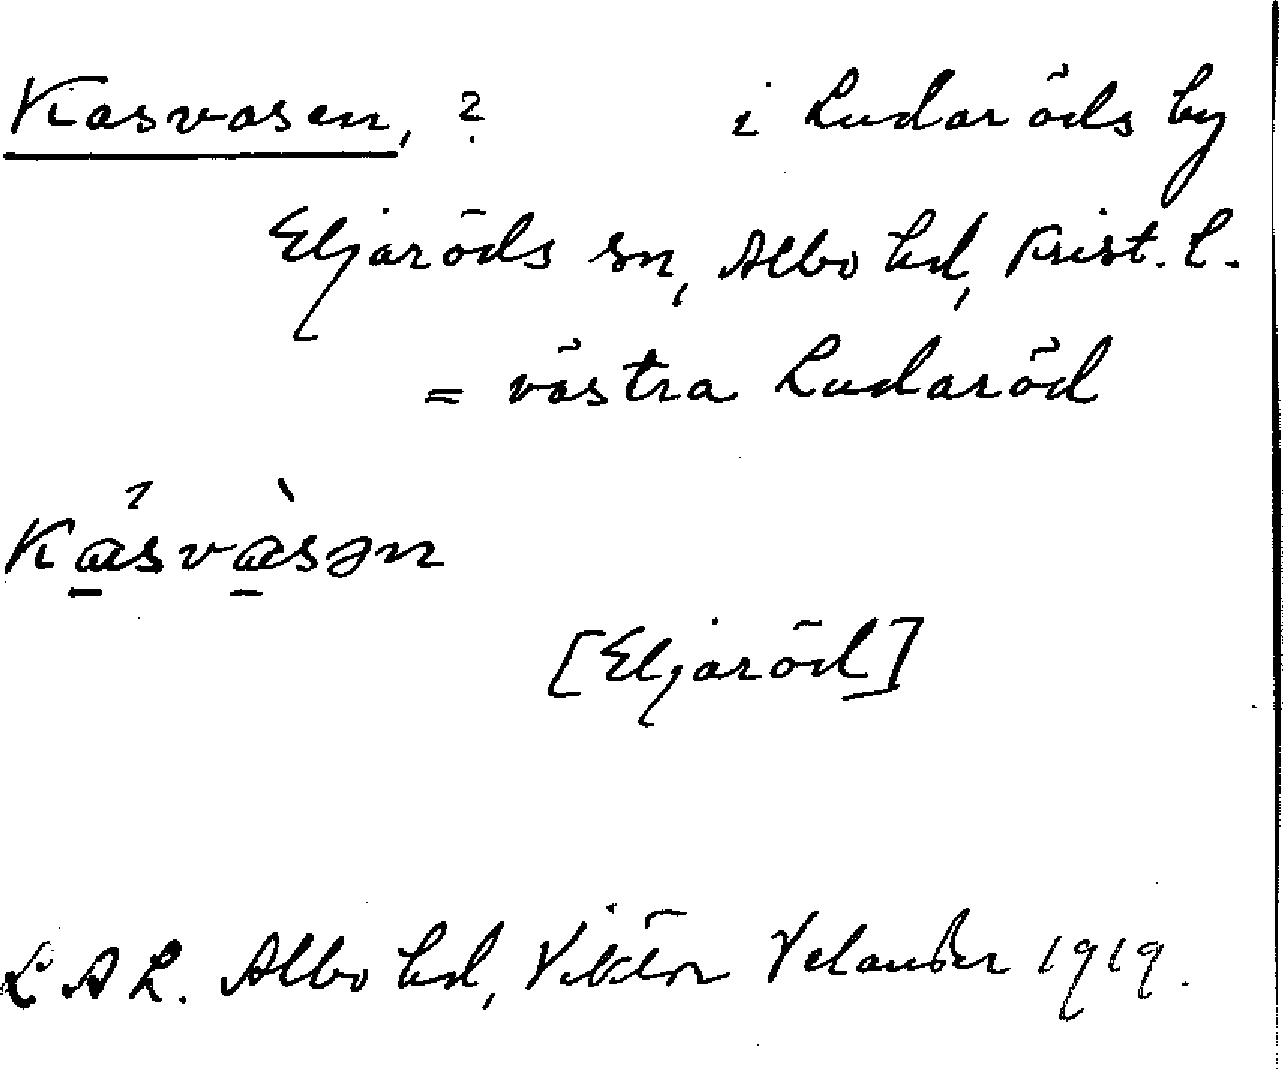 Kasvasen, ? i Ludaröds by
Eljaröds sn, Albo hd, Krist. l.
= västra Ludaröd
Kásvàsən
[Eljaröd]
L A L. Albo hd, Viktor Velander 1919.